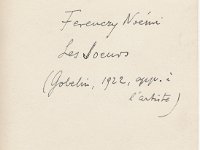 Ferenczy Noémi
Les Soeurs
(Gobelin, 1922, app. à
l'artiste)